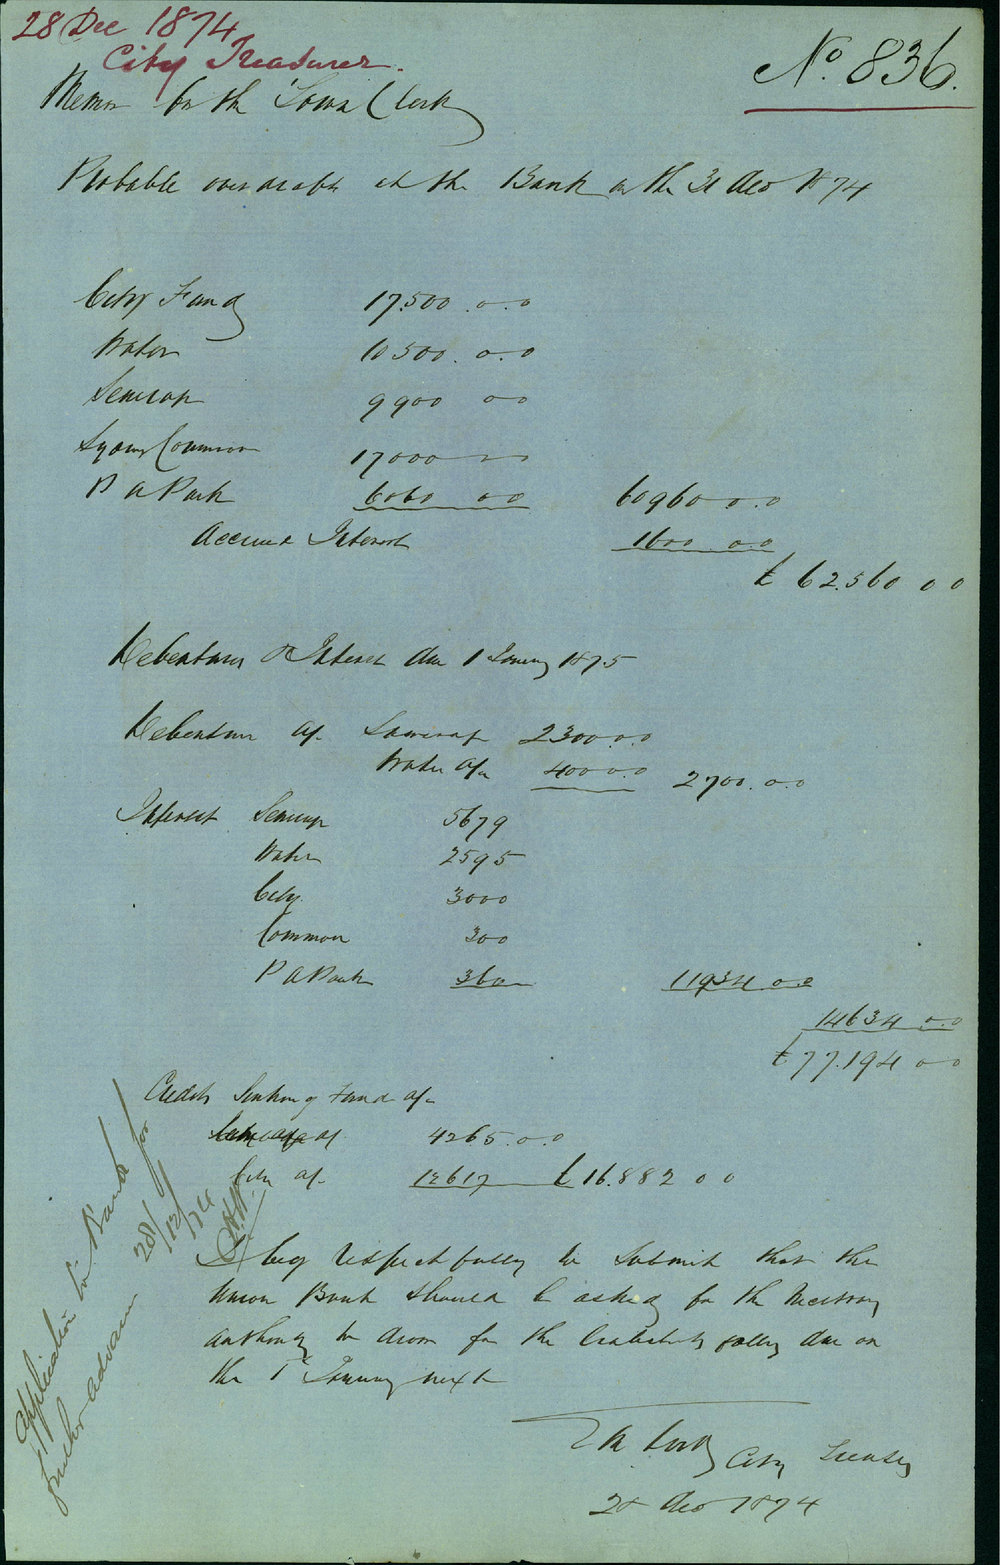 28 Dec 1874
City Treasurer.
No. 836.
Memo for the Town Clerk
Probable overdraft at the Bank on the 31 Dec 1874
City Fund 17.500.0.0
Water 10500.0.0
Sewerage 9900 00
Sydney Common 17000
P A Park 6060 00 60960 0.0
Accrued Interest 1600.0.0
£ 62.560 0 0
Debentures & Interest due 1 January 1875
Debenture a/c Sewerage 2300.0.0
Water a/c 400 0.0 2700.0.0
Interest Sewerage 5679
Water 2595
City 3000
Common 300
P A Park 360 11934 0.0
14634 0.0
£77.194 0 0
Credits Sinking Fund a/c
a/c 4265.0.0
City a/c 12617 £16.882 0 0
I beg respectfully to submit that the
Union Bank should be asked for the necessary
authority to draw for the liabilities falling due on
the 1st January next
City Treasurer
28 Dec 1874
Application to Bank for
further advance 28/12/74